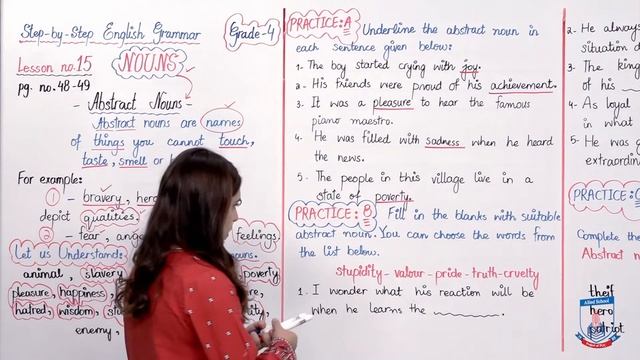 Step-by-Step English Grammar
Grade-4
Lesson no.15
NOUNS
pg. no. 48-49
- Abstract Nouns -
Abstract nouns are names
of things you cannot touch,
taste, smell or
For example:
1 - bravery,
depict qualities.
2 - fear,
feelings.
Let us Understand:
nouns.
animal, slavery
poverty
pleasure, happiness,
hatred, wisdom,
enemy,
PRACTICE: A Underline the abstract noun in
each sentence given below:
1. The boy started crying with joy.
2- His friends were proud of his achievement.
3- It was a pleasure to hear the famous
piano maestro.
4- He was filled with sadness when he heard
the news.
5- The people in this village live in a
state of poverty.
PRACTICE: B Fill in the blanks with suitable
abstract noun. You can choose the words from
the list below.
stupidity - valour - pride - truth - cruelty
1. I wonder what his reaction will be
when he learns the
2- He always
situation
3- The king
of his
4- As loyal
in what
5- He was
extraordin
PRACTICE:
Complete the
Abstract
theif
hero
patriot
Allied School